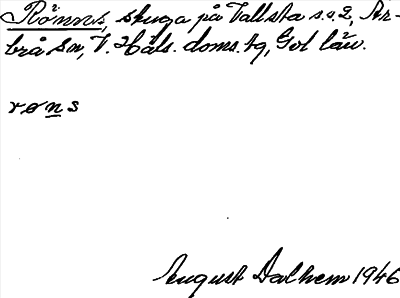 Rönnus, skuga på Vallsta s.o.2, Ar-
brå sn, V. Häls. doms. tg, Gvl län.
røns
August Dalhem 1946